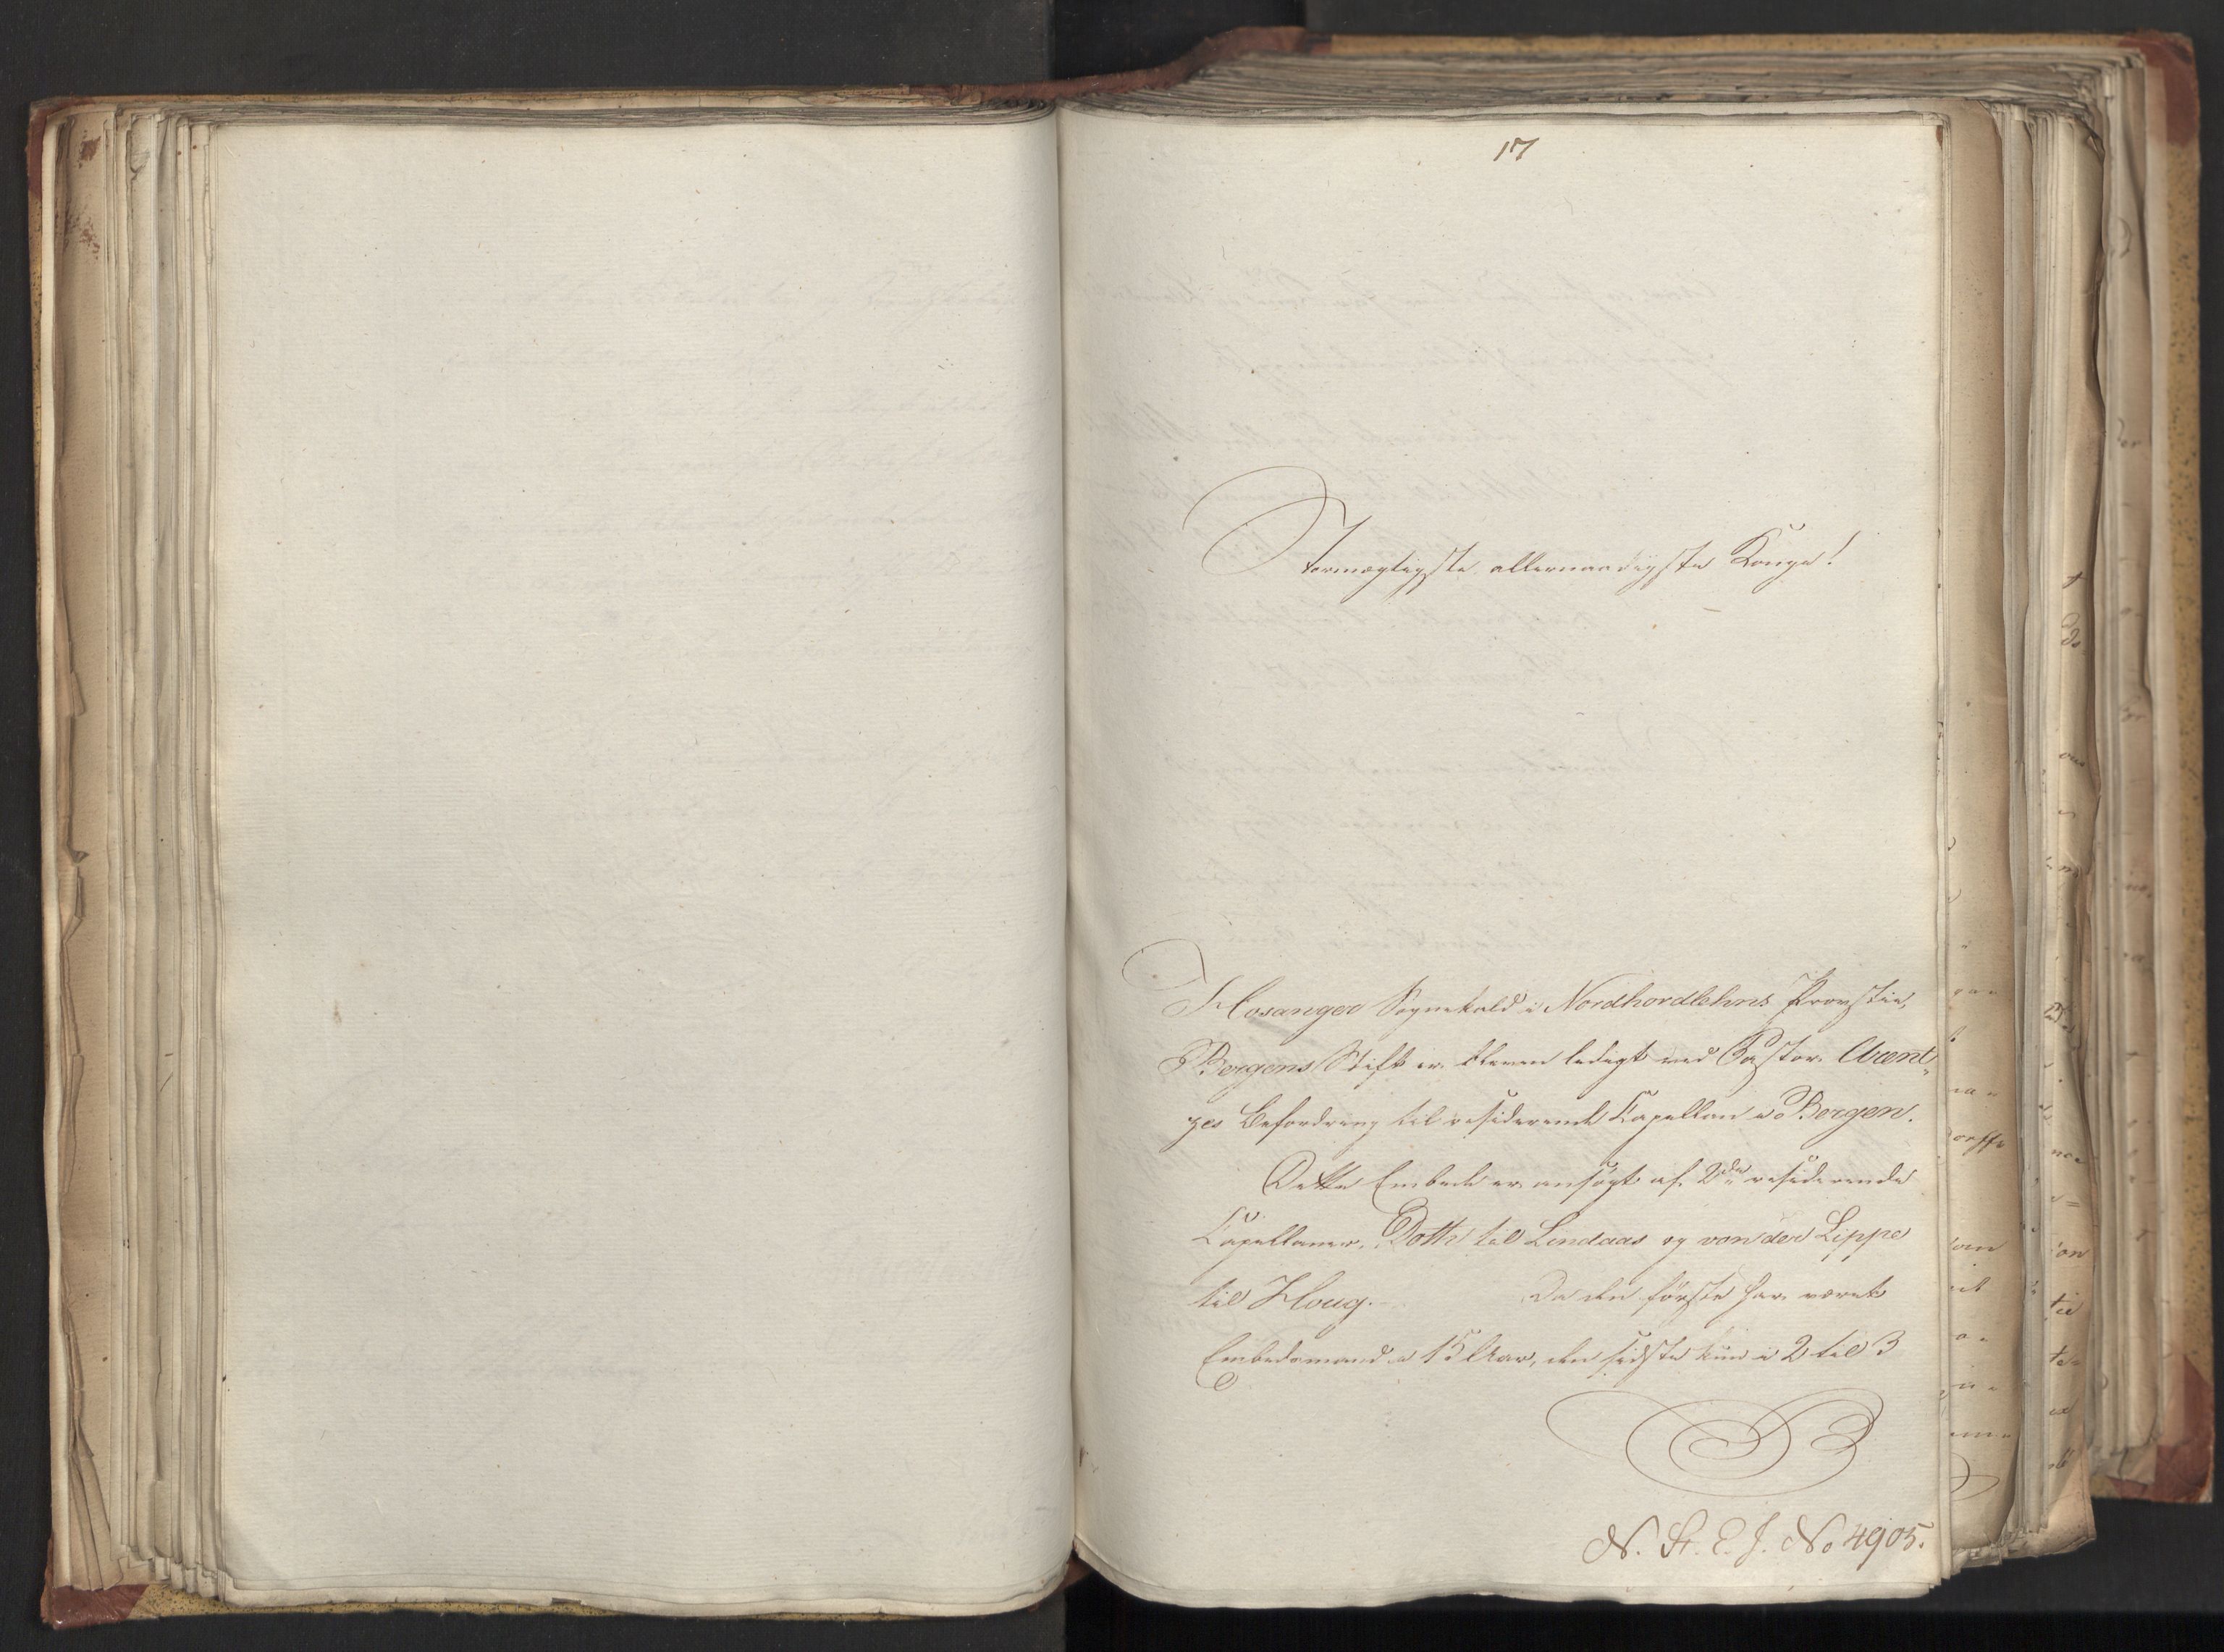 17
Stormægtigste allernaadigste Konge!
Hosanger Sognekald i Nordhordlehns Provstie,
Bergens Stift er bleven ledigt ved Pastor Arent-
zes Befordring til residerende Capellan i Bergen.
Dette Embede er ansøgt af 2de residerende
Capellaner, Doth til Lindaas og von der Lippe
til Houg. Da den første har været
Embedsmand i 15 Aar, den sidste kun i 2 til 3
N. St. E. J. No 4905.